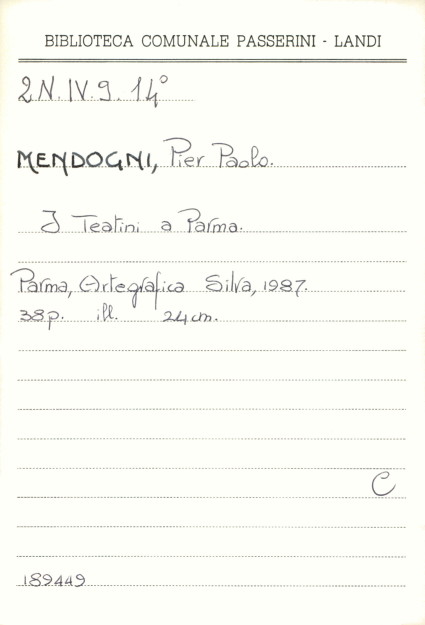 BIBLIOTECA COMUNALE PASSERINI - LANDI
2N.IV.9.14°
MENDOGNI, Pier Paolo.
I Teatini a Parma.
Parma, Artegrafica Silva, 1987.
38p. ill. 24cm.
C
189449